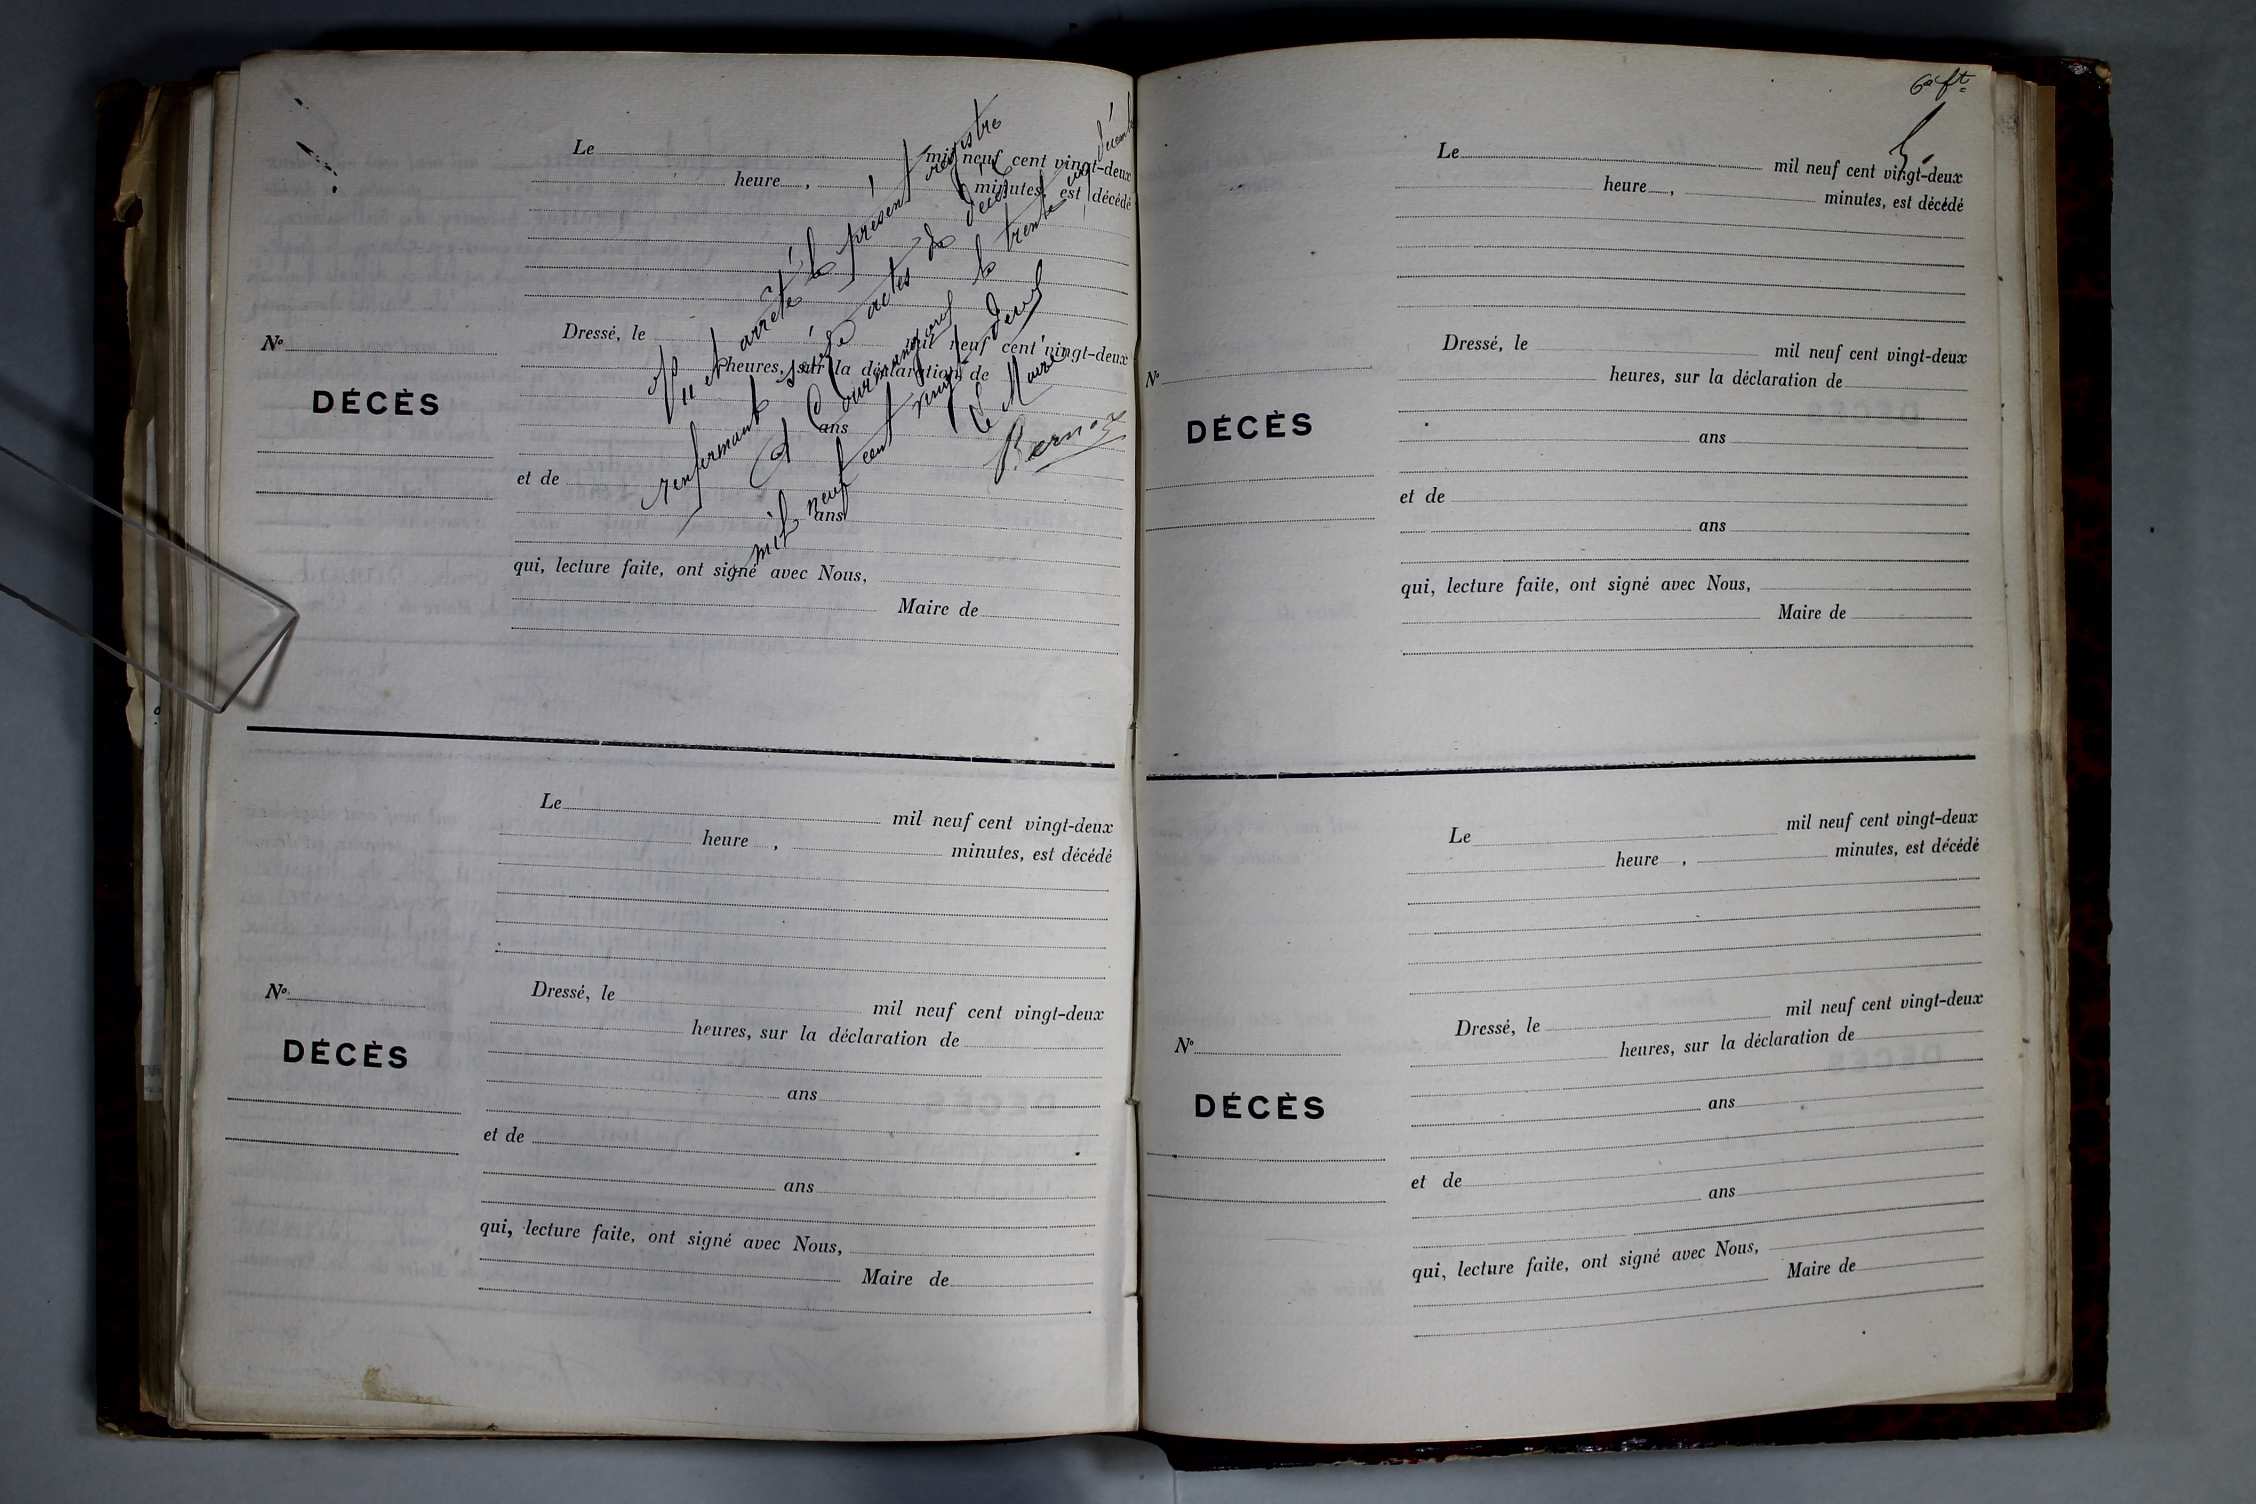 Le mil neuf cent vingt-deux
heure , minutes, est décédé
Vu et arrêté le présent registre
renfermant seize actes de décès
A Courmangoux le trente un décembre
mil neuf cent vingt deux
Le Maire
Dressé, le mil neuf cent vingt-deux
heures, sur la déclaration de
No
DÉCÈS
ans
et de
ans
qui, lecture faite, ont signé avec Nous,
Maire de
Le mil neuf cent vingt-deux
heure , minutes, est décédé
No
Dressé, le mil neuf cent vingt-deux
heures, sur la déclaration de
DÉCÈS
ans
et de
ans
qui, lecture faite, ont signé avec Nous,
Maire de
6e ft
Le mil neuf cent vingt-deux
heure , minutes, est décédé
Dressé, le mil neuf cent vingt-deux
heures, sur la déclaration de
No
DÉCÈS
ans
et de
ans
qui, lecture faite, ont signé avec Nous,
Maire de
Le mil neuf cent vingt-deux
heure , minutes, est décédé
Dressé, le mil neuf cent vingt-deux
heures, sur la déclaration de
No
DÉCÈS
ans
et de
ans
qui, lecture faite, ont signé avec Nous,
Maire de